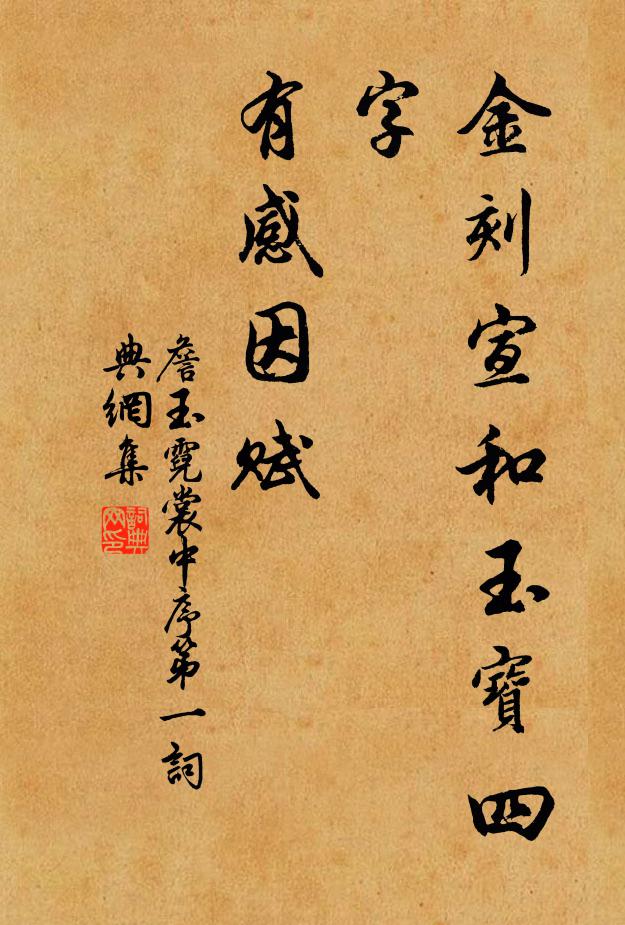 金刻宣和玉寶四
字
有感因賦
詹玉霓裳中序第一詞
典網集
詞典網印